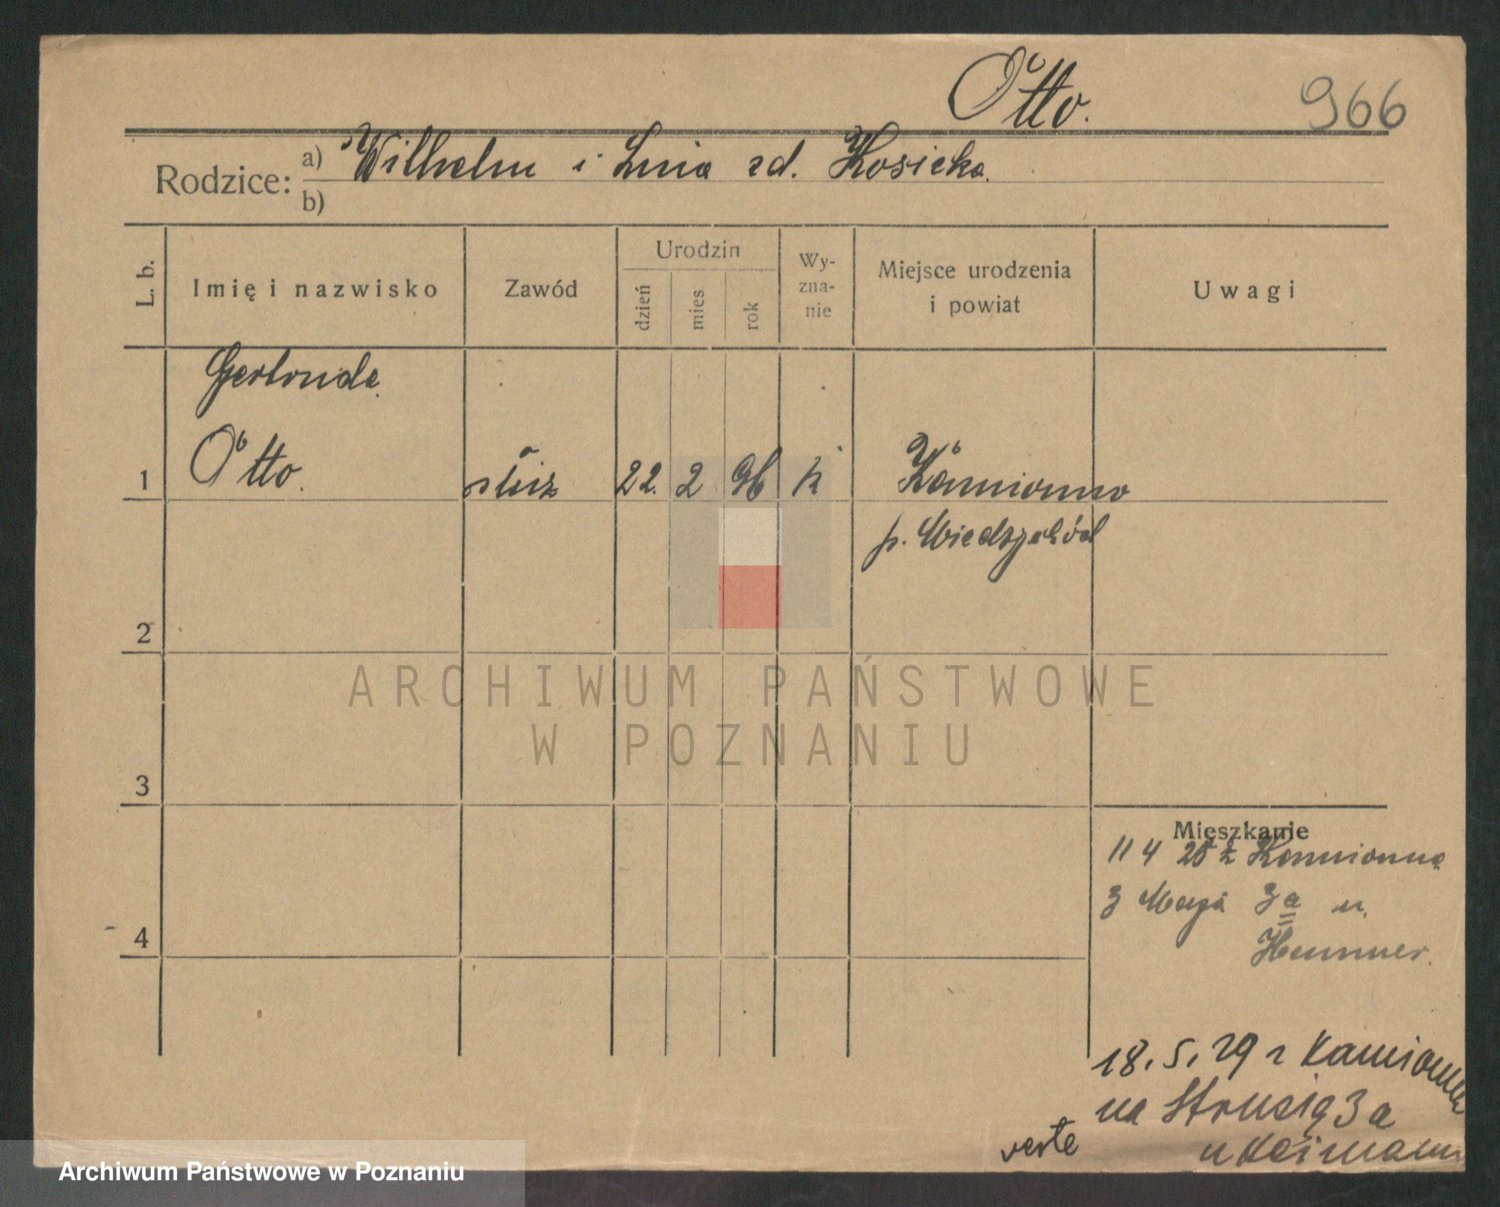 Otto.
966
Rodzice:
a) Wilhelm i Lnia zd. Kosicka.
b)
L. b.
Imię i nazwisko
Zawód
Urodzin
dzień
mies
rok
Wy-
zna-
nie
Miejsce urodzenia
i powiat
Uwagi
Gertruda
1 Otto. służ 22. 2 96 k Kamionna
p. Miedzychód
2
ARCHIWUM PAŃSTWOWE
W POZNANIU
3
Mieszkanie
11 4 z Kamionna
3 Maja 3a u.
4
18. 5. 29 z Kamionna
na Strusią 3a
u
verte
Archiwum Państwowe w Poznaniu